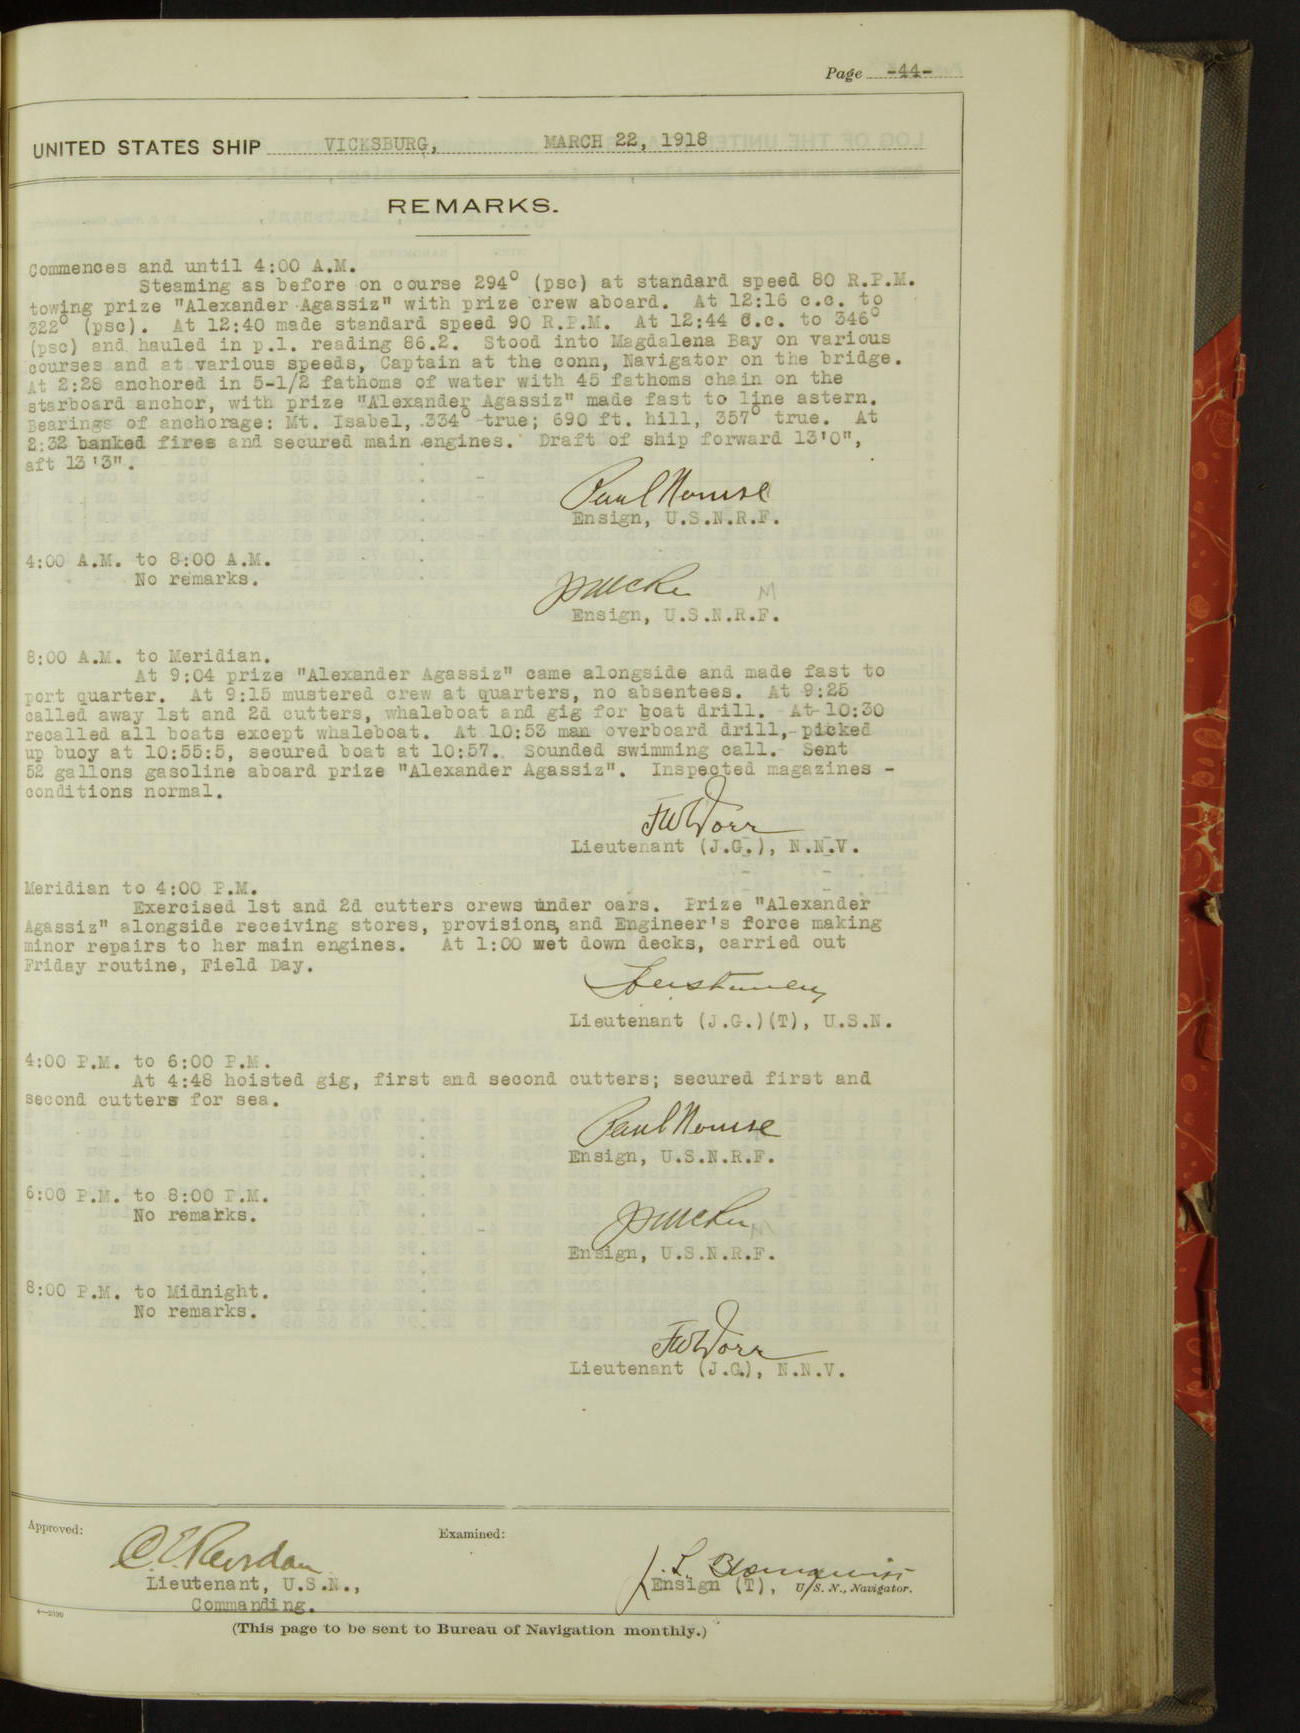 Page -44-
UNITED STATES SHIP VICKSBURG, MARCH 22, 1918
REMARKS.
Commences and until 4:00 A.M.
Steaming as before on course 294° (psc) at standard speed 80 R.P.M.
towing prize "Alexander Agassiz" with prize crew aboard. At 12:16 c.c. to
322° (psc). At 12:40 made standard speed 90 R.P.M. At 12:44 c.c. to 346°
(psc) and hauled in p.l. reading 86.2. Stood into Magdalena Bay on various
courses and at various speeds, Captain at the conn, Navigator on the bridge.
At 2:28 anchored in 5-1/2 fathoms of water with 45 fathoms chain on the
starboard anchor, with prize "Alexander Agassiz" made fast to line astern.
Bearings of anchorage: Mt. Isabel, 334° true; 690 ft. hill, 357° true. At
2:32 banked fires and secured main engines. Draft of ship forward 13'0",
aft 13'3".
Paul Nourse
Ensign, U.S.N.R.F.
4:00 A.M. to 8:00 A.M.
No remarks.
Ensign, U.S.N.R.F.
8:00 A.M. to Meridian.
At 9:04 prize "Alexander Agassiz" came alongside and made fast to
port quarter. At 9:15 mustered crew at quarters, no absentees. At 9:25
called away 1st and 2d cutters, whaleboat and gig for boat drill. At 10:30
recalled all boats except whaleboat. At 10:53 man overboard drill, picked
up buoy at 10:55:5, secured boat at 10:57. Sounded swimming call. Sent
52 gallons gasoline aboard prize "Alexander Agassiz". Inspected magazines -
conditions normal.
FW Dorr
Lieutenant (J.G.), N.N.V.
Meridian to 4:00 P.M.
Exercised 1st and 2d cutters crews under oars. Prize "Alexander
Agassiz" alongside receiving stores, provisions, and Engineer's force making
minor repairs to her main engines. At 1:00 wet down decks, carried out
Friday routine, Field Day.
Lieutenant (J.G.)(T), U.S.N.
4:00 P.M. to 6:00 P.M.
At 4:48 hoisted gig, first and second cutters; secured first and
second cutters for sea.
Paul Nourse
Ensign, U.S.N.R.F.
6:00 P.M. to 8:00 P.M.
No remarks.
Ensign, U.S.N.R.F.
8:00 P.M. to Midnight.
No remarks.
FW Dorr
Lieutenant (J.G.), N.N.V.
Approved:
Examined:
C. E. Reordan
J. L. Blomquist
Lieutenant, U.S.N.,
Ensign (T), U. S. N., Navigator.
Commanding.
(This page to be sent to Bureau of Navigation monthly.)